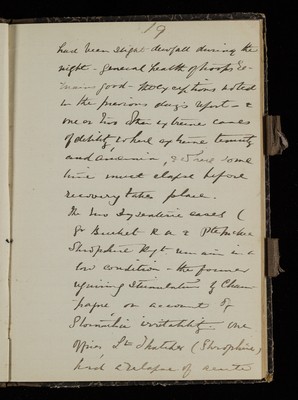 19
had been slight dewfall during the
night - general health of troops re-
mains good - the exceptions noted
in the previous day's report - &
one or two other extreme cases
of debility where extreme
and anaemia, & some
time must elapse before
recovery takes place.
The two Dysenteric cases (
Gr Burket R A & Pte
Shropshire Regt remain in a
low condition - the former
requiring stimulation by Cham-
pagne on account of
Stomachic irritability. One
officer Lt Thatcher (Shropshire)
had a relapse of acute